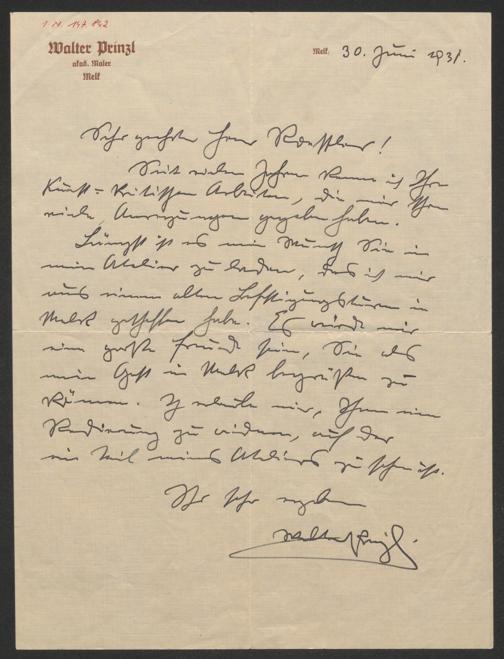 I.N. 147.842
Walter Prinzl
akad. Maler
Melk
Melk, 30. Juni 1931.
Sehr geehrter Herr Roessler!
Seit vielen Jahren kenne ich Ihre
Kunst-kritischen Arbeiten, die mir schon
viele Anregungen gegeben haben.
Längst ist es mein Wunsch Sie in
mein Atelier zu laden, das ich mir
aus einem alten Befestigungsturm in
Melk geschaffen habe. Es würde mir
eine große Freude sein, Sie als
mein Gast in Melk begrüßen zu
können. Ich erlaube mir, Ihnen eine
Radierung zu widmen, auf der
ein Teil meines Ateliers zu sehen ist.
Ihr sehr ergebener
Walter Prinzl